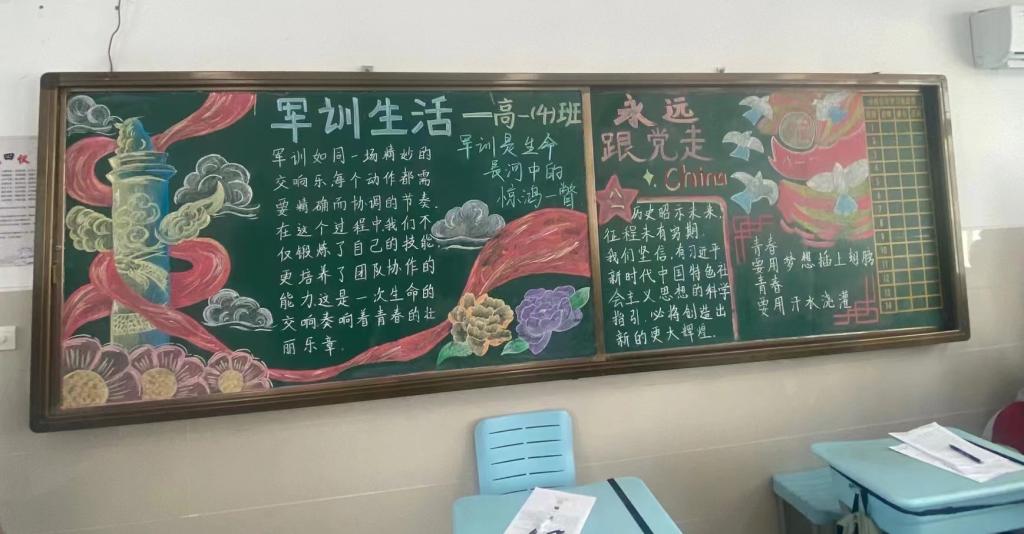 军训生活
一高一(4)班
军训是生命
長河中的
惊鸿一瞥
军训如同一场精妙的
交响乐,每个动作都需
要精确而协调的节奏.
在这个过程中,我们不
仅锻炼了自己的技能
更培养了团队协作的
能力.这是一次生命的
交响奏响着青春的壮
丽乐章.
永远
跟党走
China
历史昭示未来,
征程未有穷期.
我们坚信,有习近平
新时代中国特色社
会主义思想的科学
指引,必将创造出
新的更大辉煌.
青春
要用梦想插上翅膀
青春
要用汗水浇灌